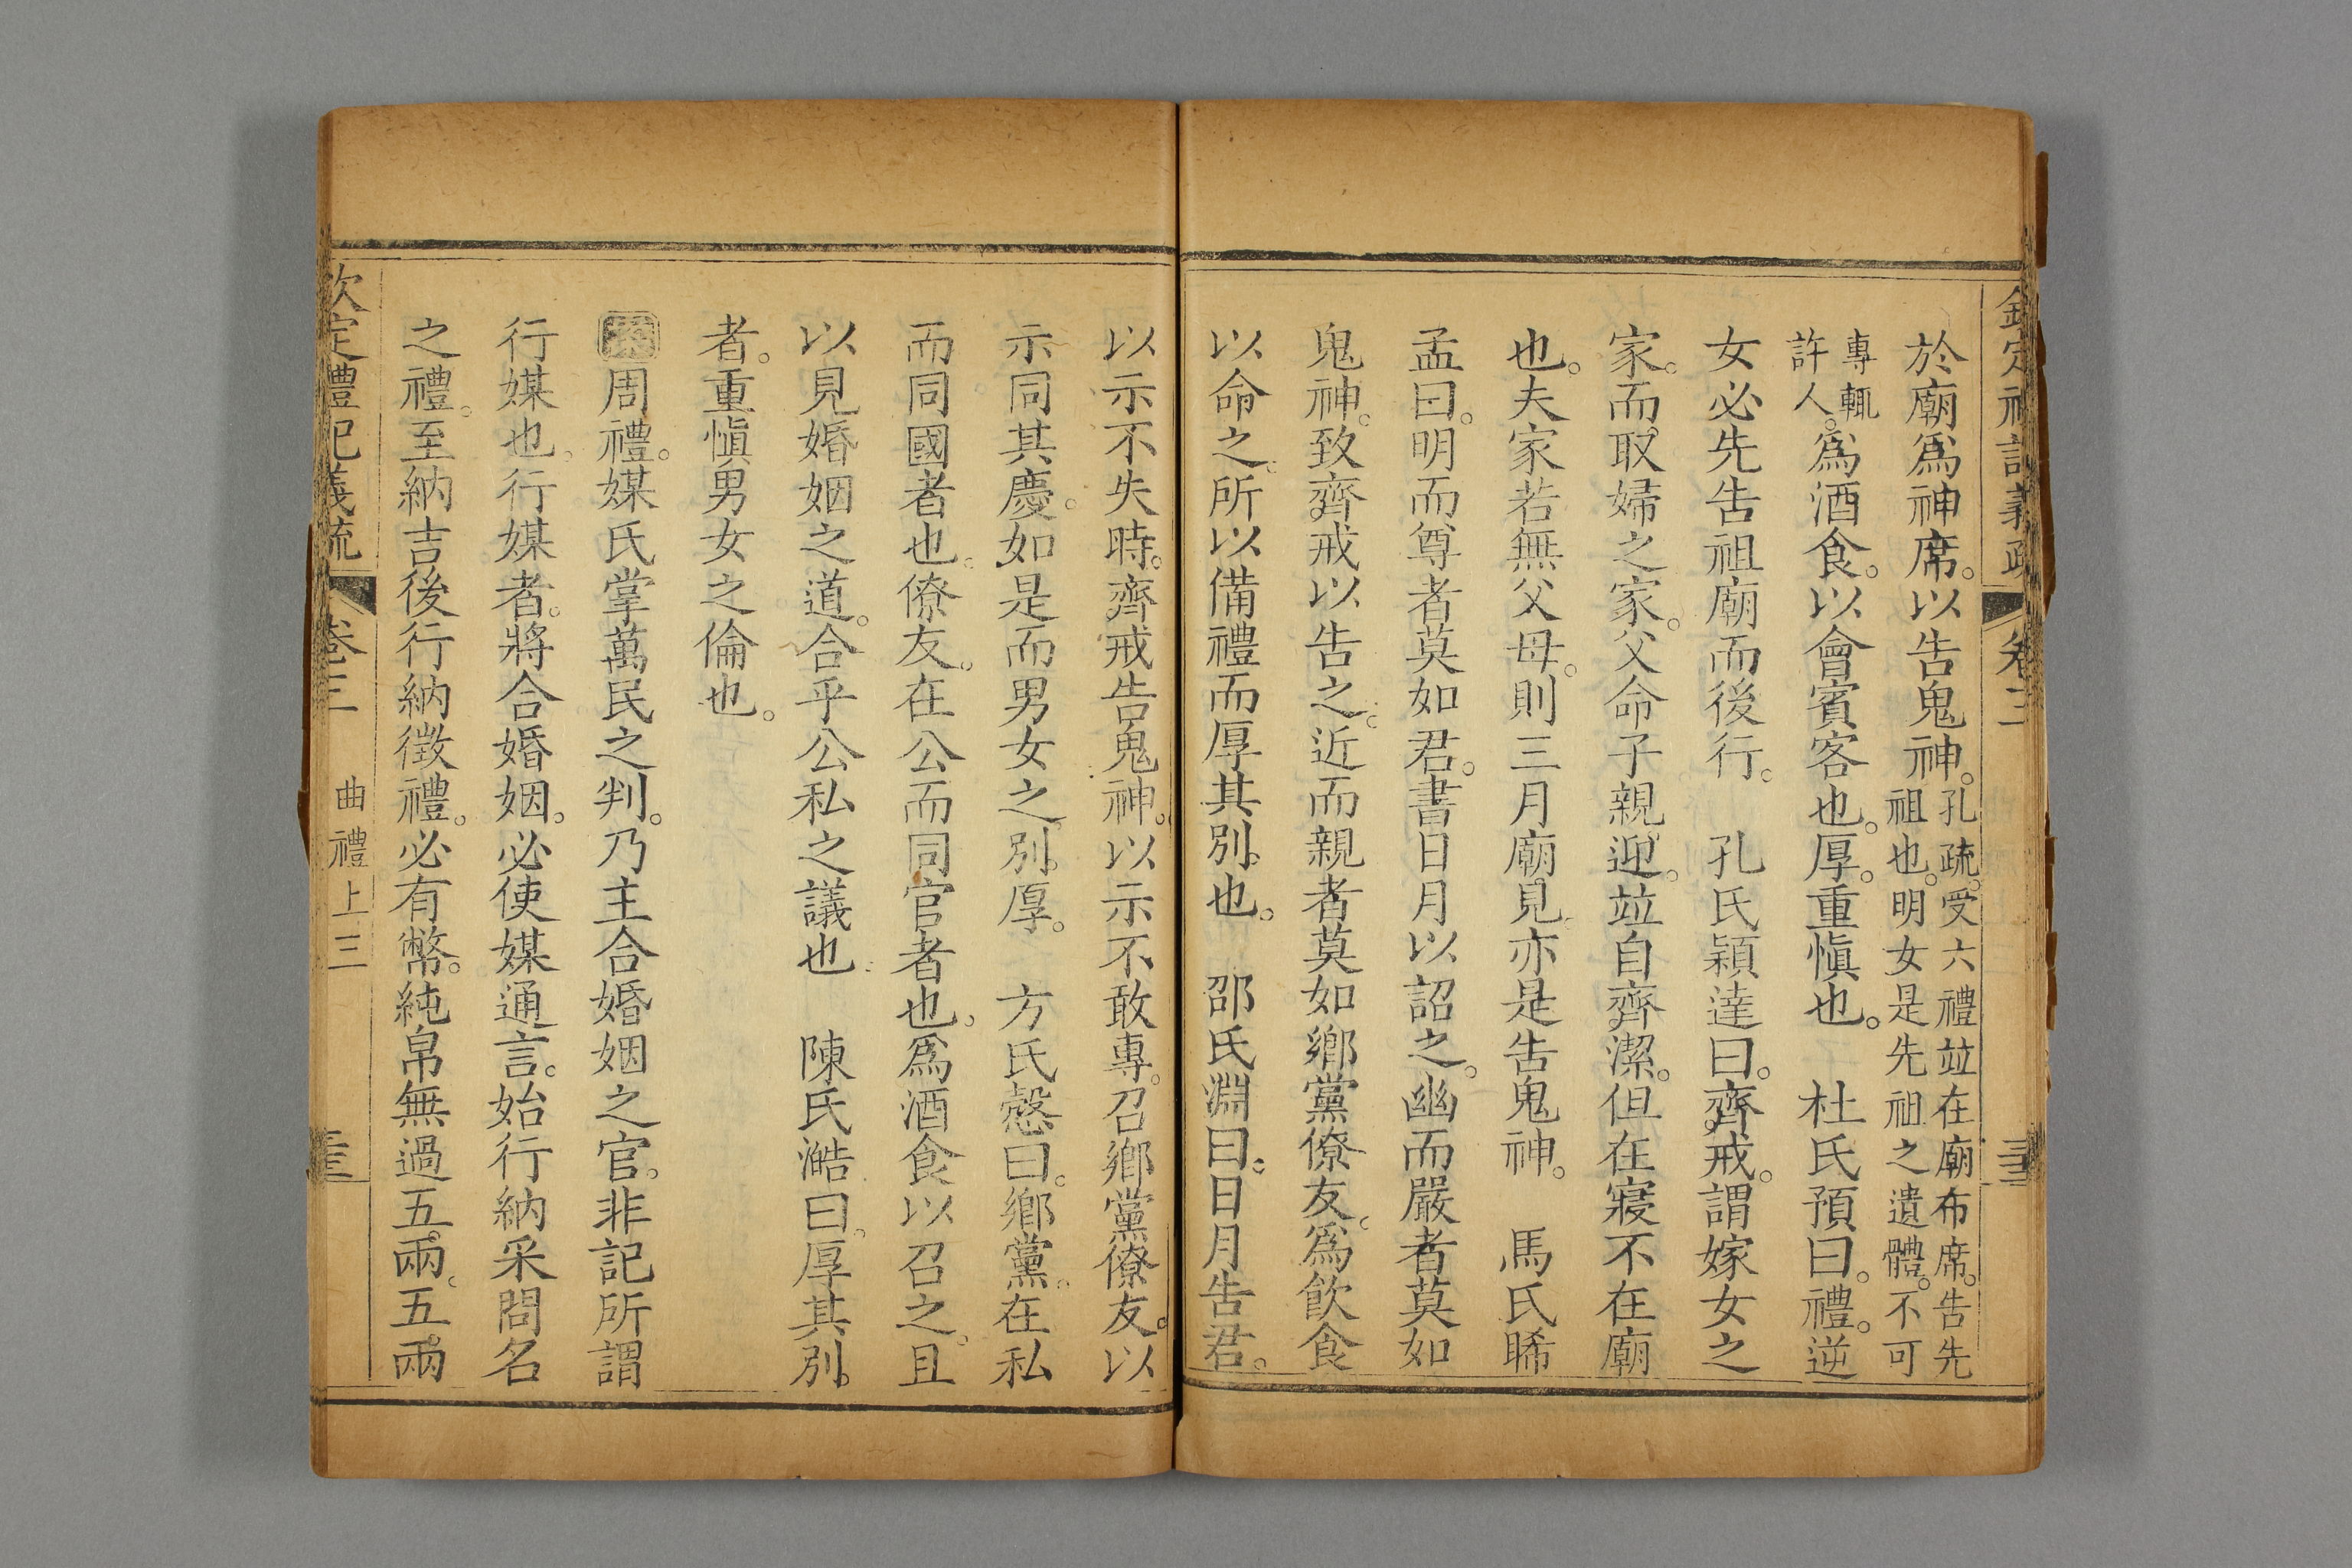 於廟爲神席。以告鬼神。孔疏。受六禮竝在廟布席。告先祖也。明女是先祖之遺體。不可
專輒許人。爲酒食。以會賓客也。厚。重愼也。　杜氏預曰。禮。逆
女必先告祖廟而後行。　孔氏穎達曰。齊戒。謂嫁女之
家。而取婦之家。父命子親迎。竝自齊潔。但在寢不在廟
也。夫家若無父母。則三月廟見。亦是告鬼神。　馬氏晞
孟曰。明而尊者莫如君。書日月以詔之。幽而嚴者莫如
鬼神。致齊戒以告之。近而親者莫如鄉黨僚友。爲飲食
以命之。所以備禮而厚其別也。　邵氏淵曰。日月告君。
以示不失時。齊戒告鬼神。以示不敢專。召鄉黨僚友。以
示同其慶。如是而男女之別。厚。　方氏慤曰。鄉黨。在私
而同國者也。僚友。在公而同官者也。爲酒食以召之。且
以見婚姻之道。合乎公私之議也　陳氏澔曰。厚其別。
者。重愼男女之倫也。
案周禮。媒氏掌萬民之判。乃主合婚姻之官。非記所謂
行媒也。行媒者。將合婚姻。必使媒通言。始行納采問名
之禮。至納吉後行納徵禮。必有幣。純帛無過五兩。五兩
欽定禮記義疏　卷三　曲禮上三